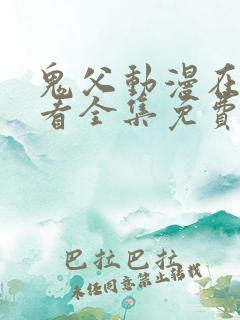 鬼父動漫在
者全集免費
巴拉巴拉
未经同意禁止转载